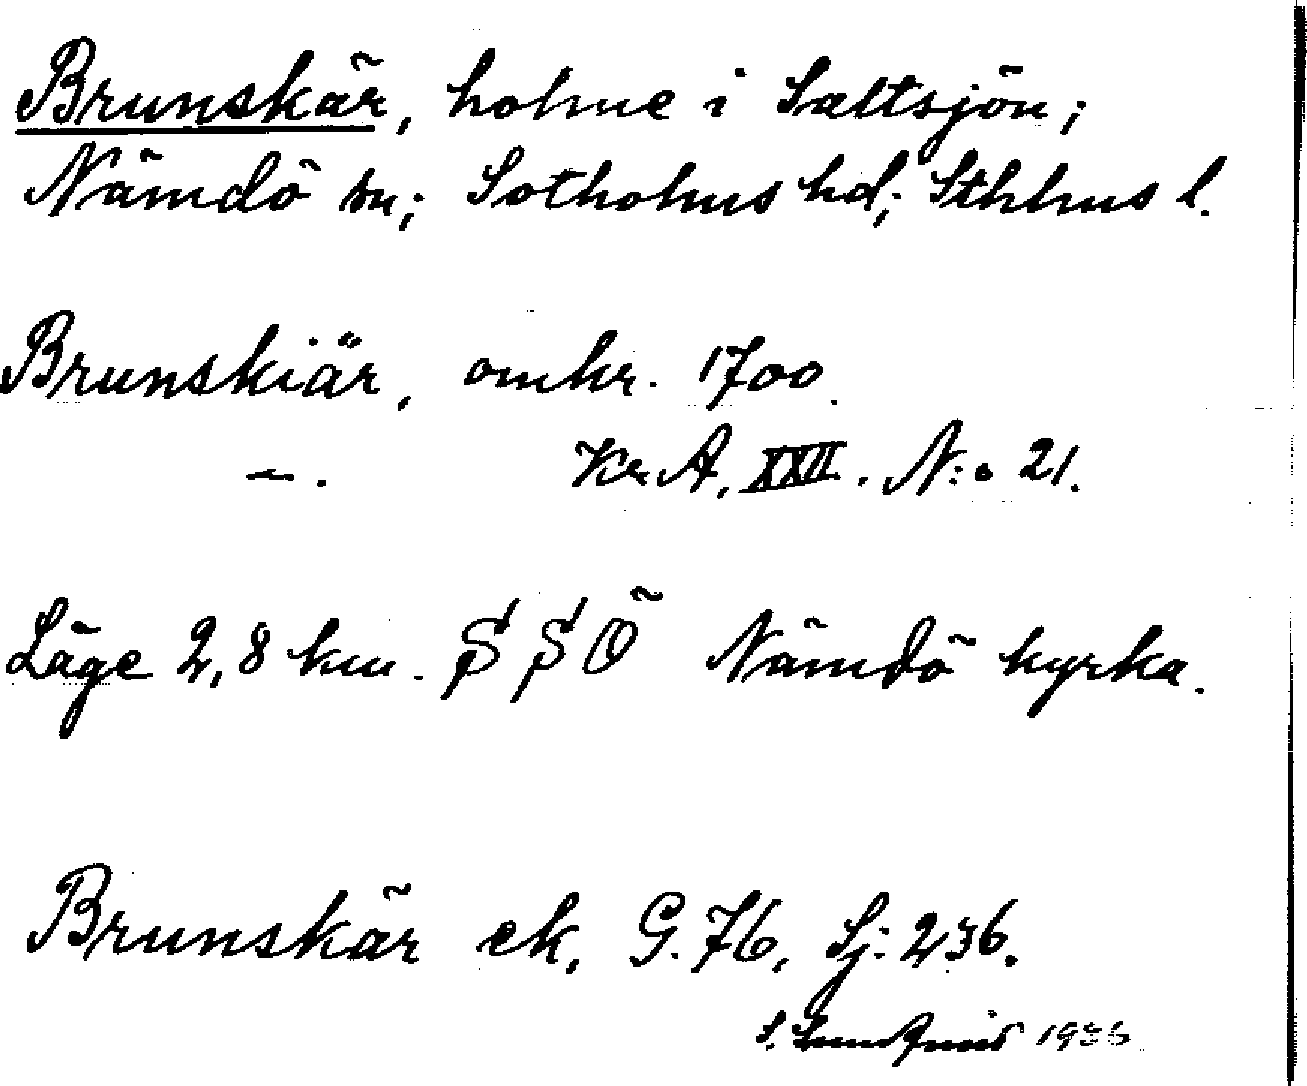 Brunskär, holme i Saltsjön;
Nämdö sn; Sotholms hd; Sthlms l.
Brunskiär, omkr. 1700.
—. Kr. A. XXII. N:o 21.
Läge 2,8 km. SSÖ Nämdö kyrka.
Brunskär ek. G. 76, Sj: 236.
S. Lundqvist